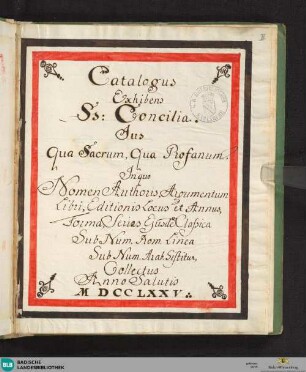 Catalogus
Exhibens
Ss: Concilia.
Jus
Qua Sacrum, Qua Profanum.
In quo
Nomen Authoris, Argumentum
Libri, Editionis Locus et Annus,
Forma, Series Ejusdē Classica
Sub Num. Rom. Linea
Sub Num. Arab. Sistitur.
Collectus
Anno Salutis
M DCC LXXV.
BLB BADISCHE
LANDESBIBLIOTHEK
Baden-Württemberg